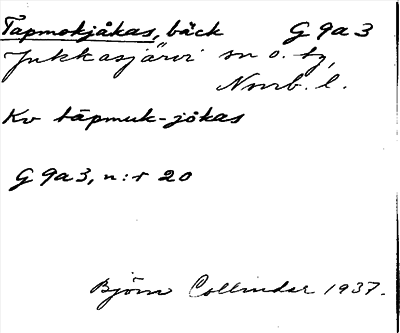 Tapmokjåkas, bäck G 9a 3
Jukkasjärvi sn o. tg,
Norrb. l.
Kv tāpmuk-jǻkas
G 9a 3, n:r 20
Björn Collinder 1937.